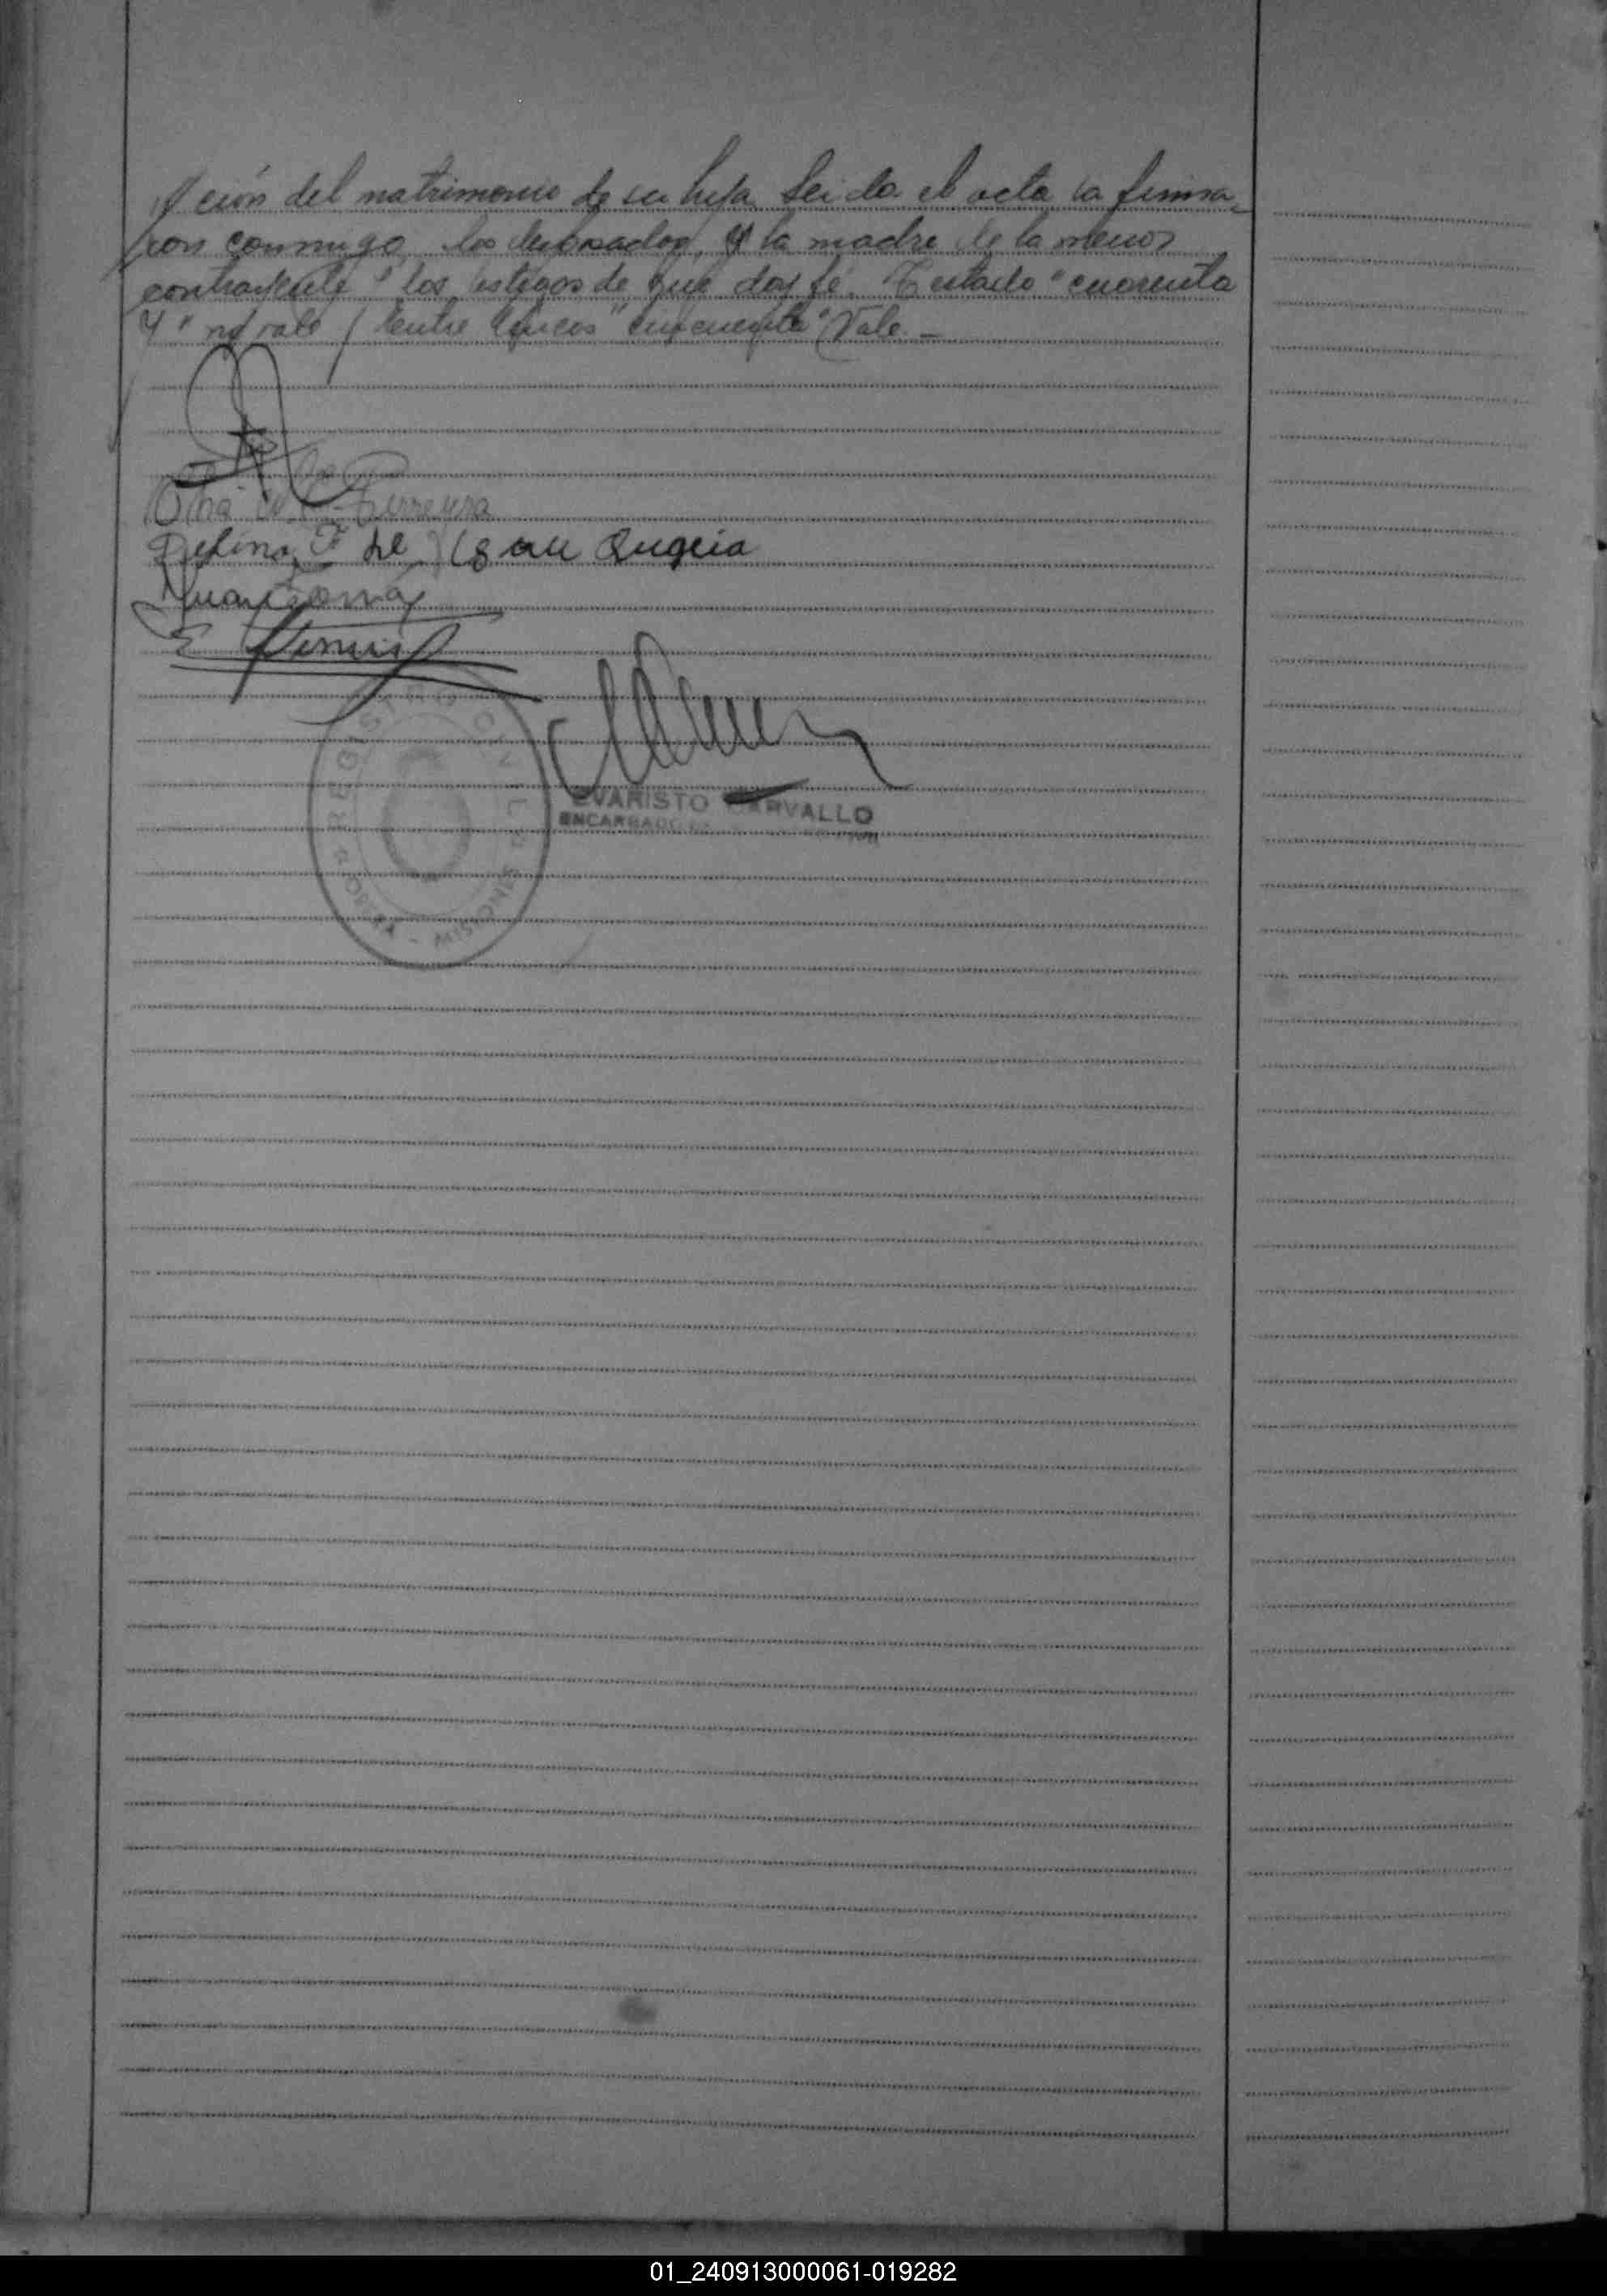 ción del matrimonio de su hija. Leida el acta la firma
ron conmigo, los desposados, y la madre de la menor
contrayente y los testigos de que doy fé. Testado "cuarenta
y" no vale / entre lineas "cincuenta" Vale. -
Ferreyra
Delfina F de
Juan
E
REGISTRO CIVIL
MISIONES
EVARISTO CARVALLO
ENCARGADO
01_240913000061-019282